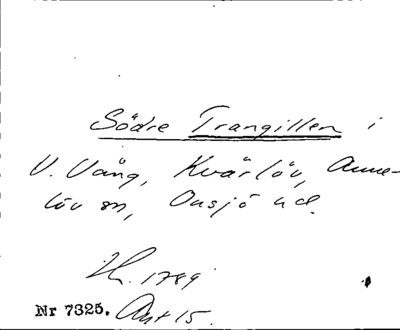 Södre Trangillen i
V. Vång, Kvärlöv, Anne-
löv sn, Onsjö hd.
H. 1789
Nr 7325. Akt 15.